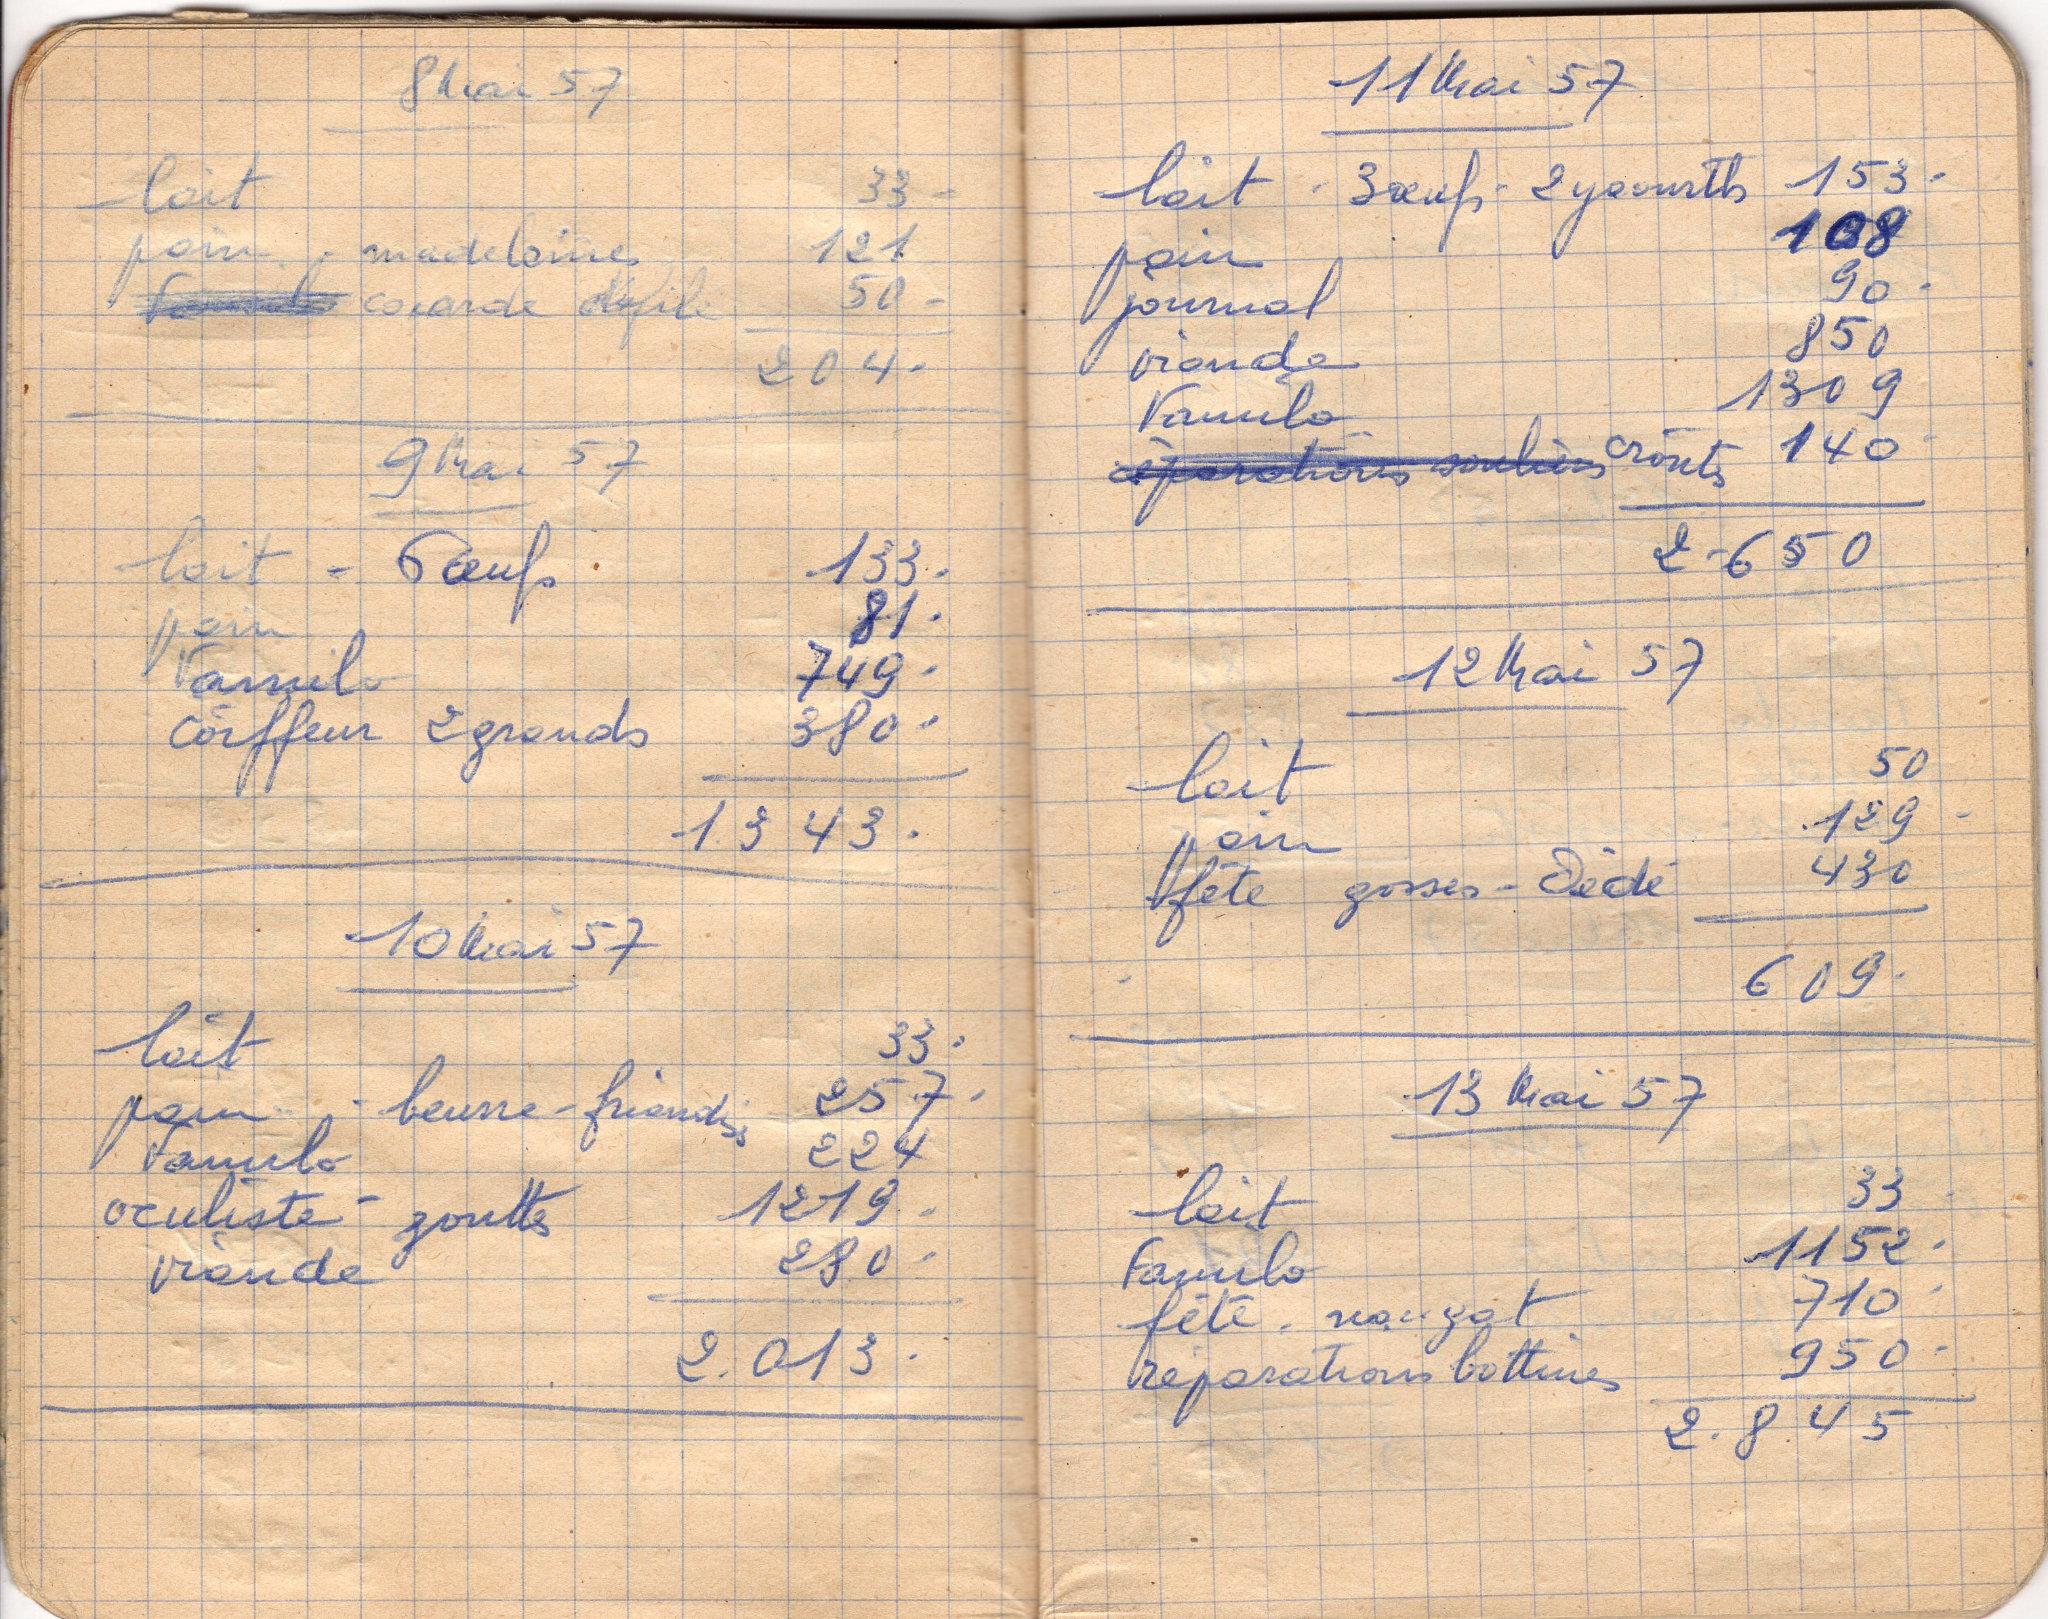 8 Mai 57
lait 33-
pain - madeleines 121
cocarde défilé 50-
204.
9 Mai 57
lait - 6 œufs 133.
pain 81.
Famulo 749.
coiffeur 2 grands 380.
1.343.
10 Mai 57
lait 33.
pain - beurre - friandises 257.
Famulo 224
oculiste - gouttes 1219.
viande 280.
2.013.
11 Mai 57
lait - 3 œufs - 2 yaourths 153.
pain 108
journal 90.
viande 850
Famulo 1309
réparations souliers 140
2.650
12 Mai 57
lait 50
pain 129
fête gosses - Dédé 430
609.
13 Mai 57
lait 33
Famulo 1152.
fête - nougat 710
réparations bottines 950.
2.845